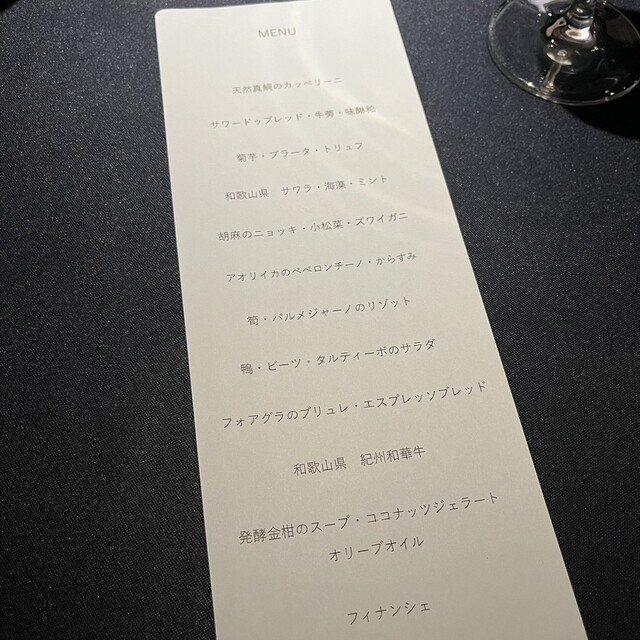 MENU
天然真鯛のカッペリーニ
サワードゥブレッド・牛蒡・味醂粕
菊芋・ブラータ・トリュフ
和歌山県 サワラ・海藻・ミント
胡麻のニョッキ・小松菜・ズワイガニ
アオリイカのペペロンチーノ・からすみ
筍・パルメジャーノのリゾット
鴨・ビーツ・タルティーボのサラダ
フォアグラのブリュレ・エスプレッソブレッド
和歌山県 紀州和華牛
発酵金柑のスープ・ココナッツジェラート
オリーブオイル
フィナンシェ